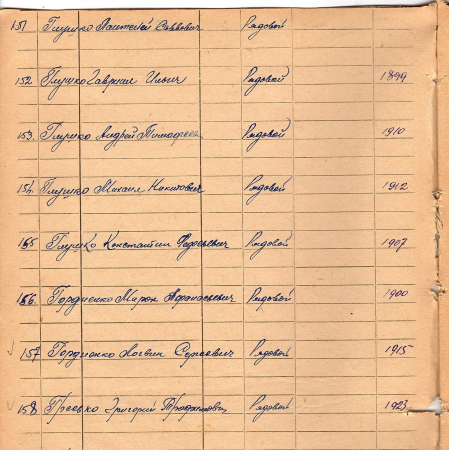 151 Глушко Пантелей Саввович Рядовой
152 Глушко Гавриил Ильич Рядовой 1899
153. Глушко Андрей Тимофеев Рядовой 1910
154. Глушко Михаил Никитович Рядовой 1912
155 Глушко Константин Рядовой 1907
156. Гордиенко Мирон Афанасьевич Рядовой 1900
157 Гордиенко Сергеевич Рядовой 1915
158 Григорий Трофимович Рядовой 1923